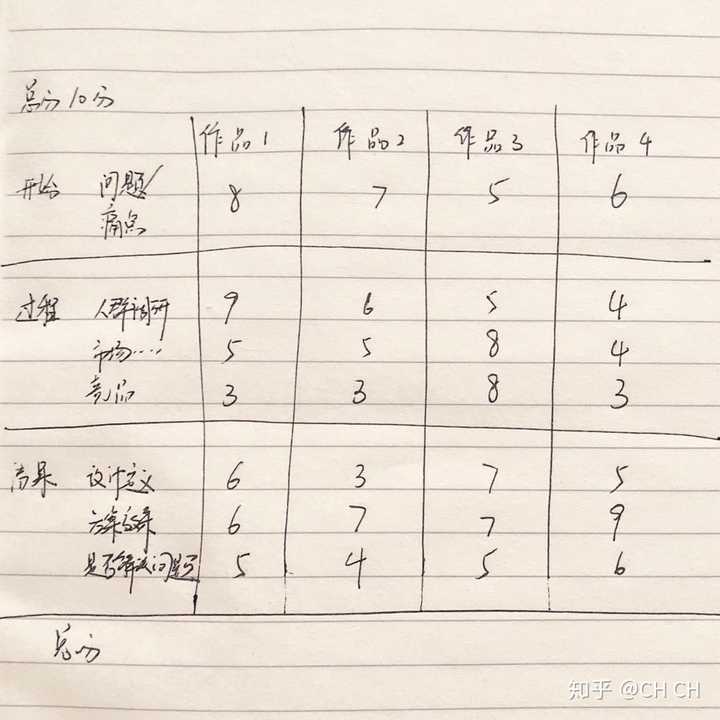 总分10分
作品1 作品2 作品3 作品4
开始 问题/ 8 7 5 6
痛点
过程 人群调研 9 6 5 4
市场…… 5 5 8 4
竞品 3 3 8 3
结果 设计定义 6 3 7 5
方案效果 6 7 7 9
是否解决问题 5 4 5 6
总分
知乎 @CH CH